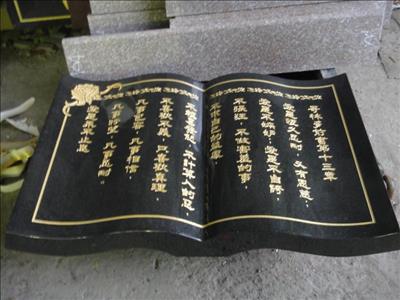 哥林多前書第十三章
愛是恆久忍耐，又有恩慈，
愛是不嫉妒，愛是不自誇，
不張狂，不做害羞的事，
不求自己的益處
不輕易發怒，不計算人的惡，
不喜歡不義，只喜歡真理，
凡事包容，凡事相信，
凡事盼望，凡事忍耐，
愛是永不止息